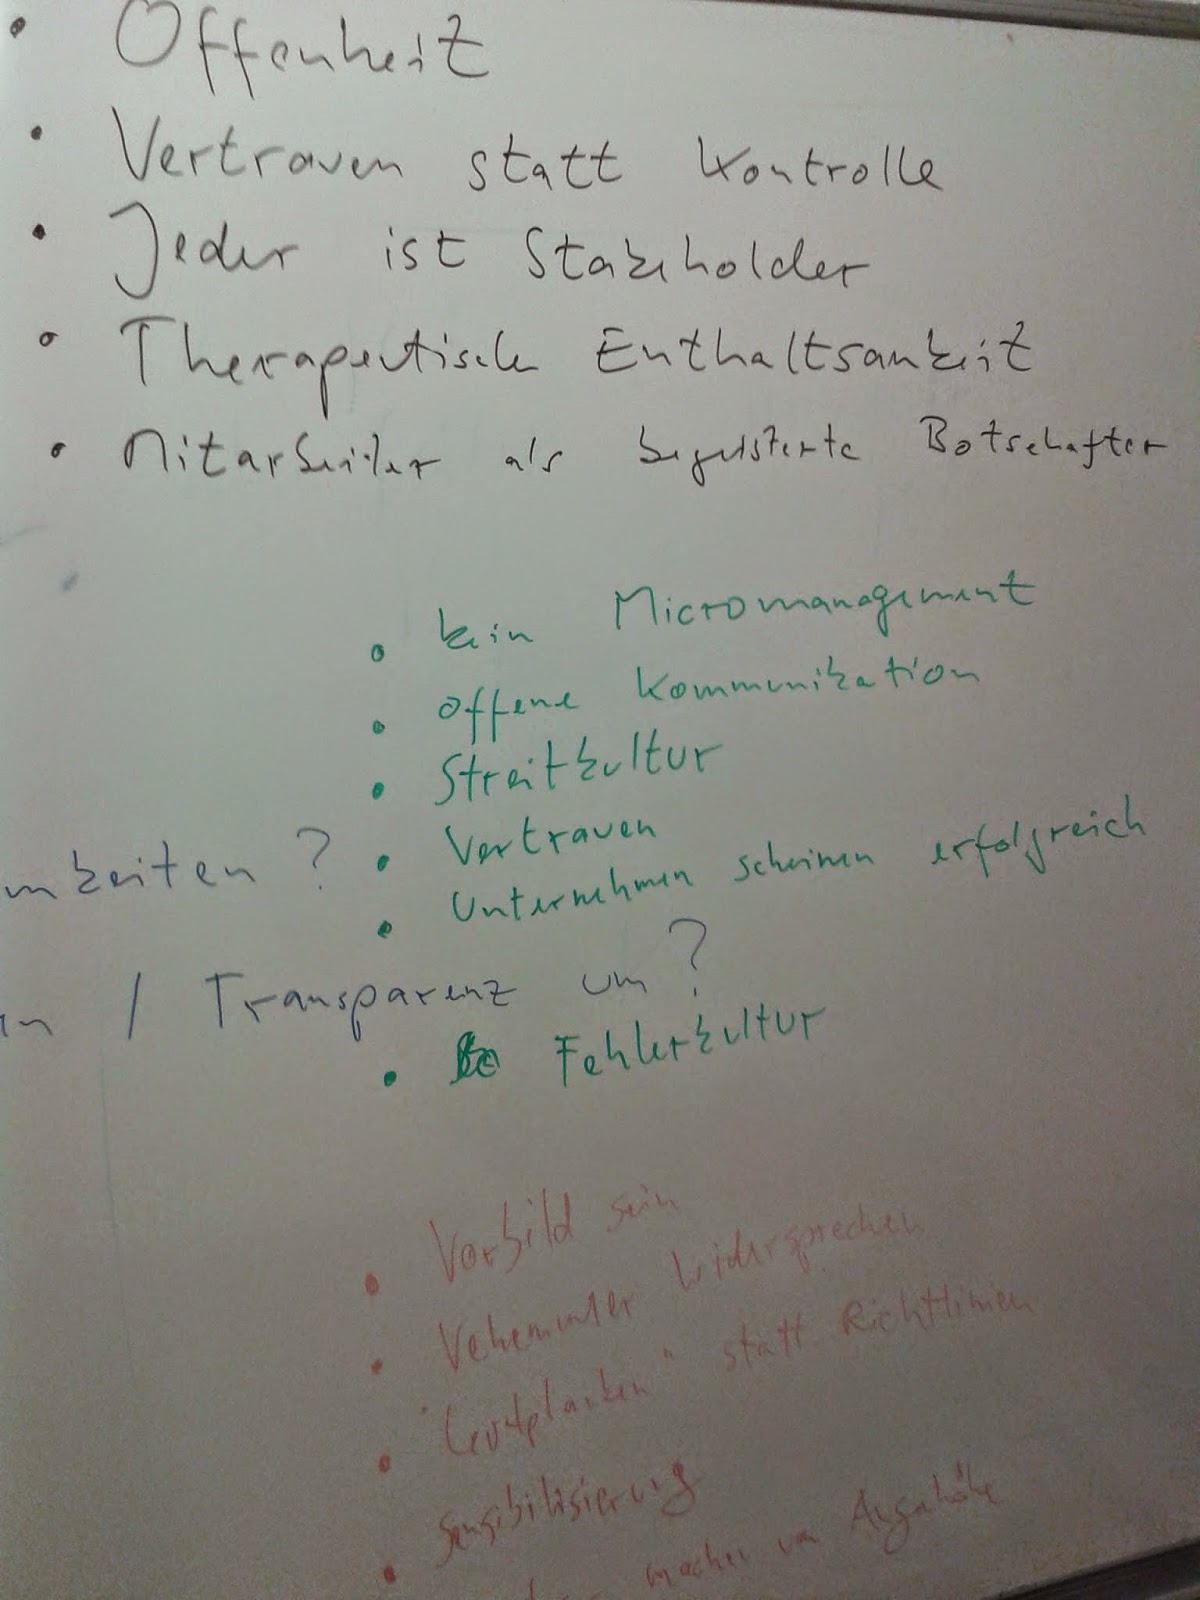 • Offenheit
• Vertrauen statt Kontrolle
• Jeder ist Stakeholder
• Therapeutische Enthaltsamkeit
• Mitarbeiter als begeisterte Botschafter
• kein Micromanagement
• offene Kommunikation
• Streitkultur
mkeiten ? • Vertrauen
• Unternehmen scheinen erfolgreich
in / Transparenz um ?
• Fehlerkultur
• Vorbild sein
• Vehementer widersprechen
• "Leitplanken" statt Richtlinien
• Sensibilisierung
macher von Augenhöhe